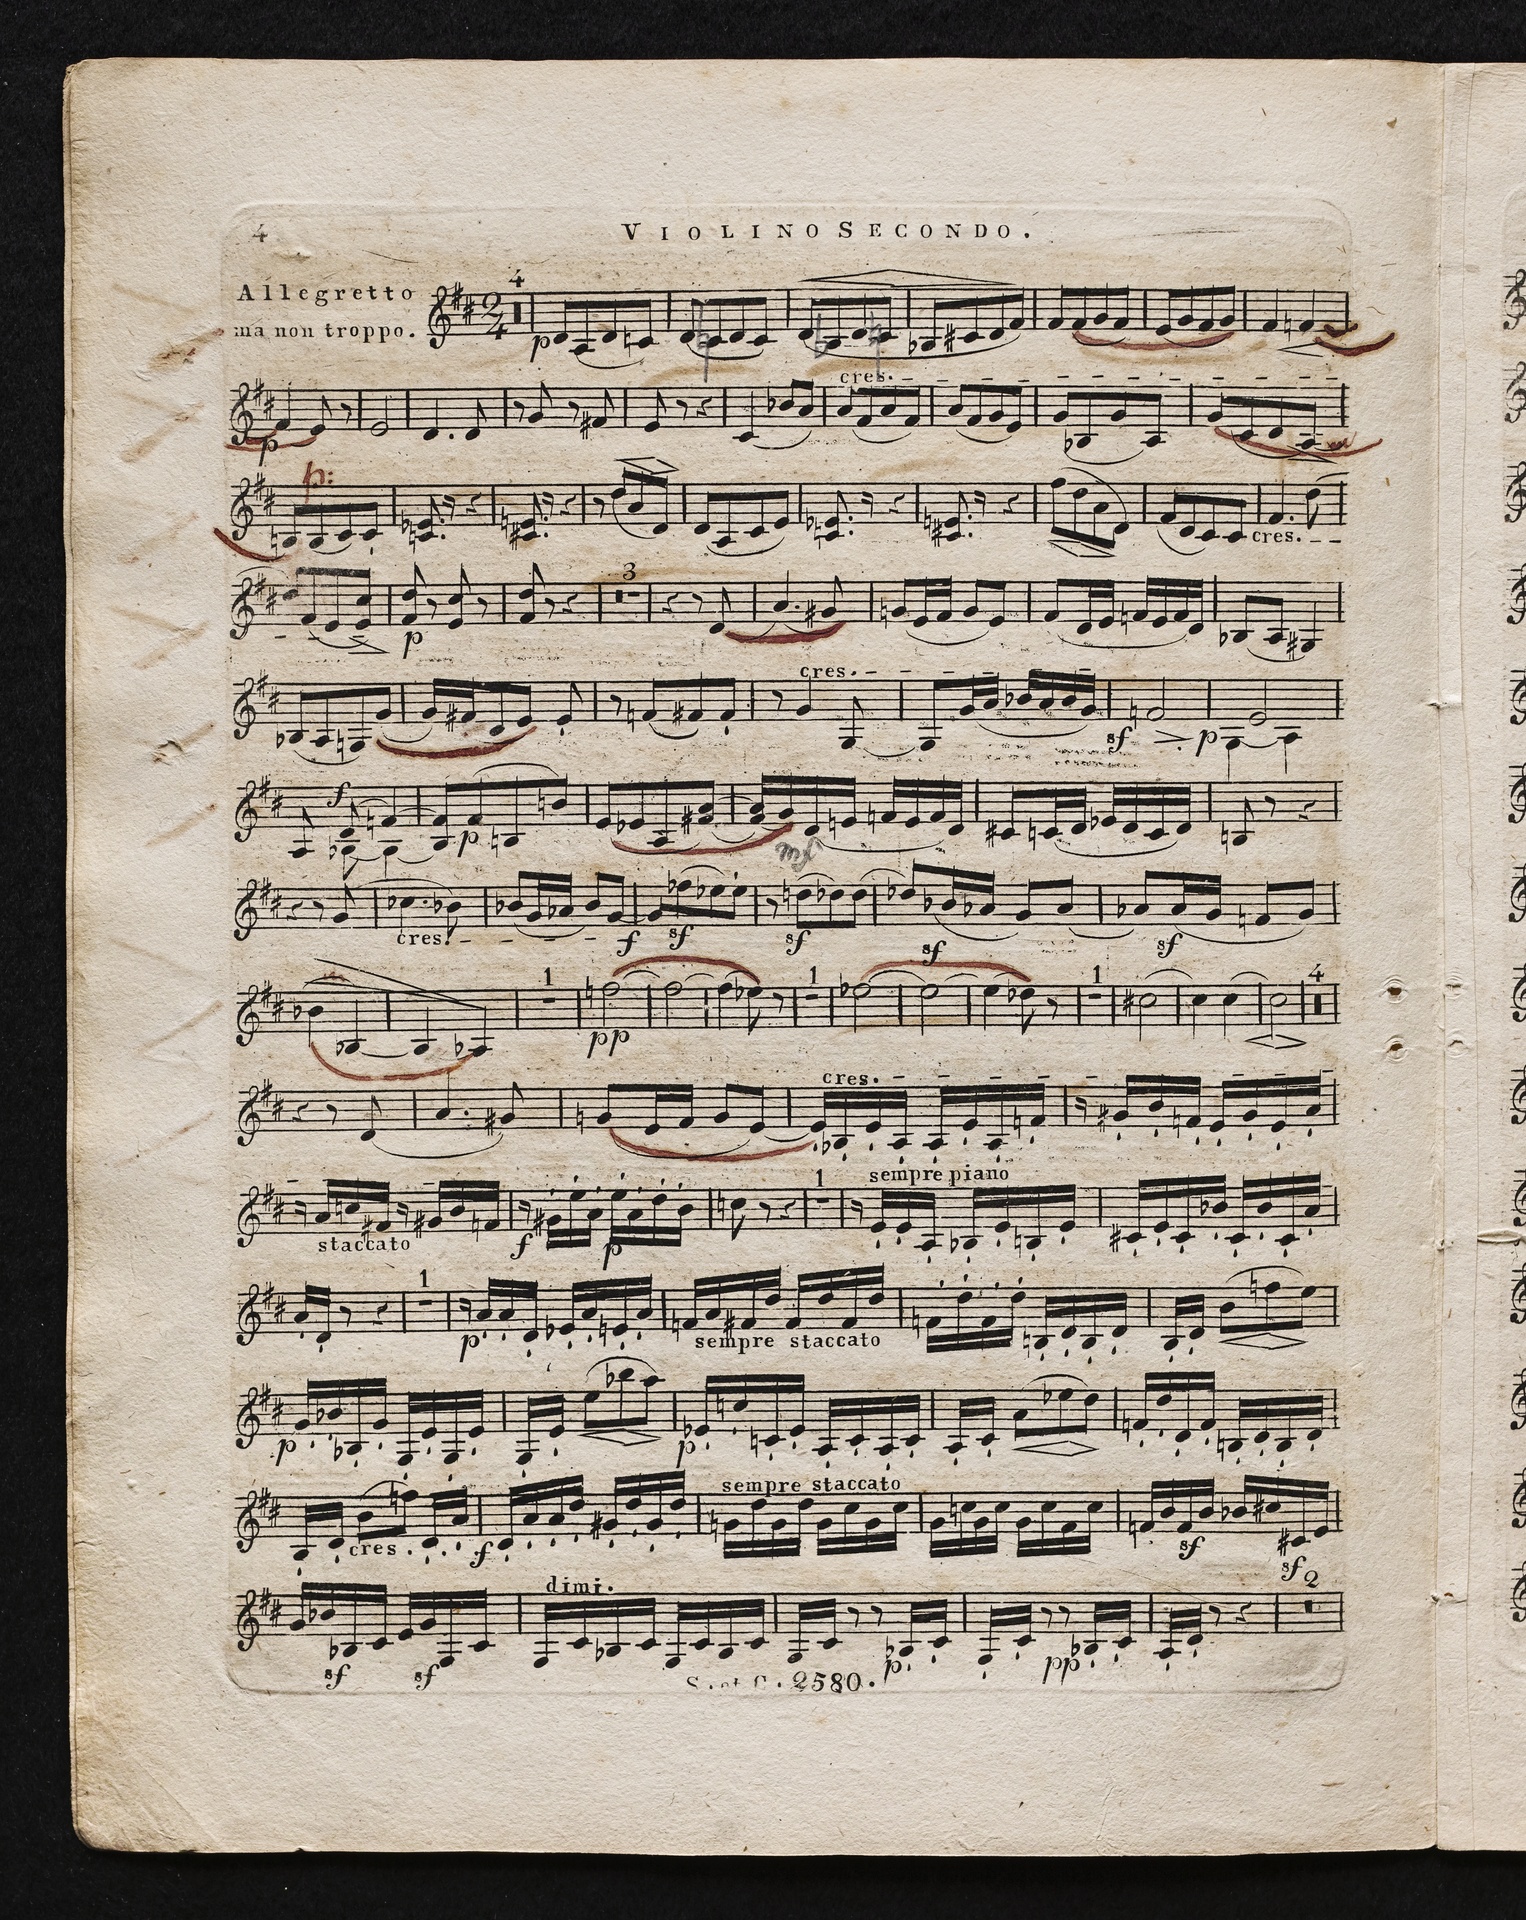 4
VIOLINO SECONDO.
4
Allegretto
ma non troppo.
2
4
p
cres.
p
p:
cres.
3
p
cres.
sf p
f
p
mf
cres. f sf sf sf sf
1 1 1 4
pp
cres.
sempre piano
1
staccato f p
1
p sempre staccato
p p
sempre staccato
cres. f sf sf
dimi. 2
sf sf p pp
S. et C. 2580.